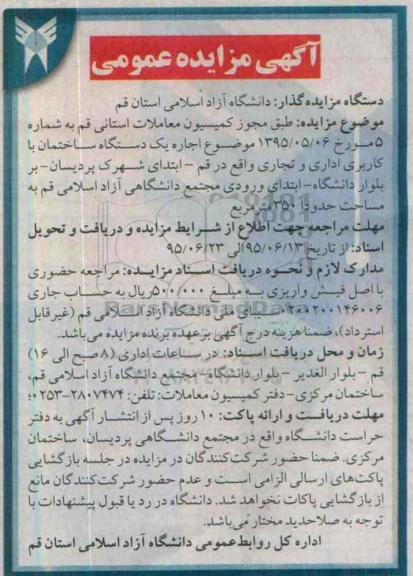 آگهی مزایده عمومی
دستگاه مزایده گذار: دانشگاه آزاد اسلامی استان قم
موضوع مزایده: طبق مجوز کمیسیون معاملات استانی قم به شماره
۵ مورخ ۱۳۹۵/۰۵/۰۶ موضوع اجاره یک دستگاه ساختمان با
کاربری اداری و تجاری واقع در قم - ابتدای شهرک پردیسان- بر
بلوار دانشگاه- ابتدای ورودی مجتمع دانشگاهی آزاد اسلامی قم به
مساحت حدودا ۳۵۰ متر مربع
مهلت مراجعه جهت اطلاع از شرایط مزایده و دریافت و تحویل
اسناد: از تاریخ ۹۵/۰۶/۱۳ الی ۹۵/۰۶/۲۳
مدارک لازم و نحوه دریافت اسناد مزایده: مراجعه حضوری
با اصل فیش واریزی به مبلغ ۵۰۰/۰۰۰ ریال به حساب جاری
سیبای ملی دانشگاه آزاد اسلامی قم (غیرقابل
استرداد)، ضمنا هزینه درج آگهی بر عهده برنده مزایده می‌باشد.
زمان و محل دریافت اسناد: در ساعات اداری (۸ صبح الی ۱۶)
قم - بلوار الغدیر - بلوار دانشگاه - مجتمع دانشگاه آزاد اسلامی قم،
ساختمان مرکزی- دفتر کمیسیون معاملات: تلفن: ۲۸۰۷۴۷۴-۰۲۵۳؛
مهلت دریافت و ارائه پاکت: ۱۰ روز پس از انتشار آگهی به دفتر
حراست دانشگاه واقع در مجتمع دانشگاهی پردیسان، ساختمان
مرکزی. ضمنا حضور شرکت‌کنندگان در مزایده در جلسه بازگشایی
پاکت‌های ارسالی الزامی است و عدم حضور شرکت‌کنندگان مانع
از بازگشایی پاکات نخواهد شد. دانشگاه در رد یا قبول پیشنهادات با
توجه به صلاحدید مختار می‌باشد.
اداره کل روابط عمومی دانشگاه آزاد اسلامی استان قم